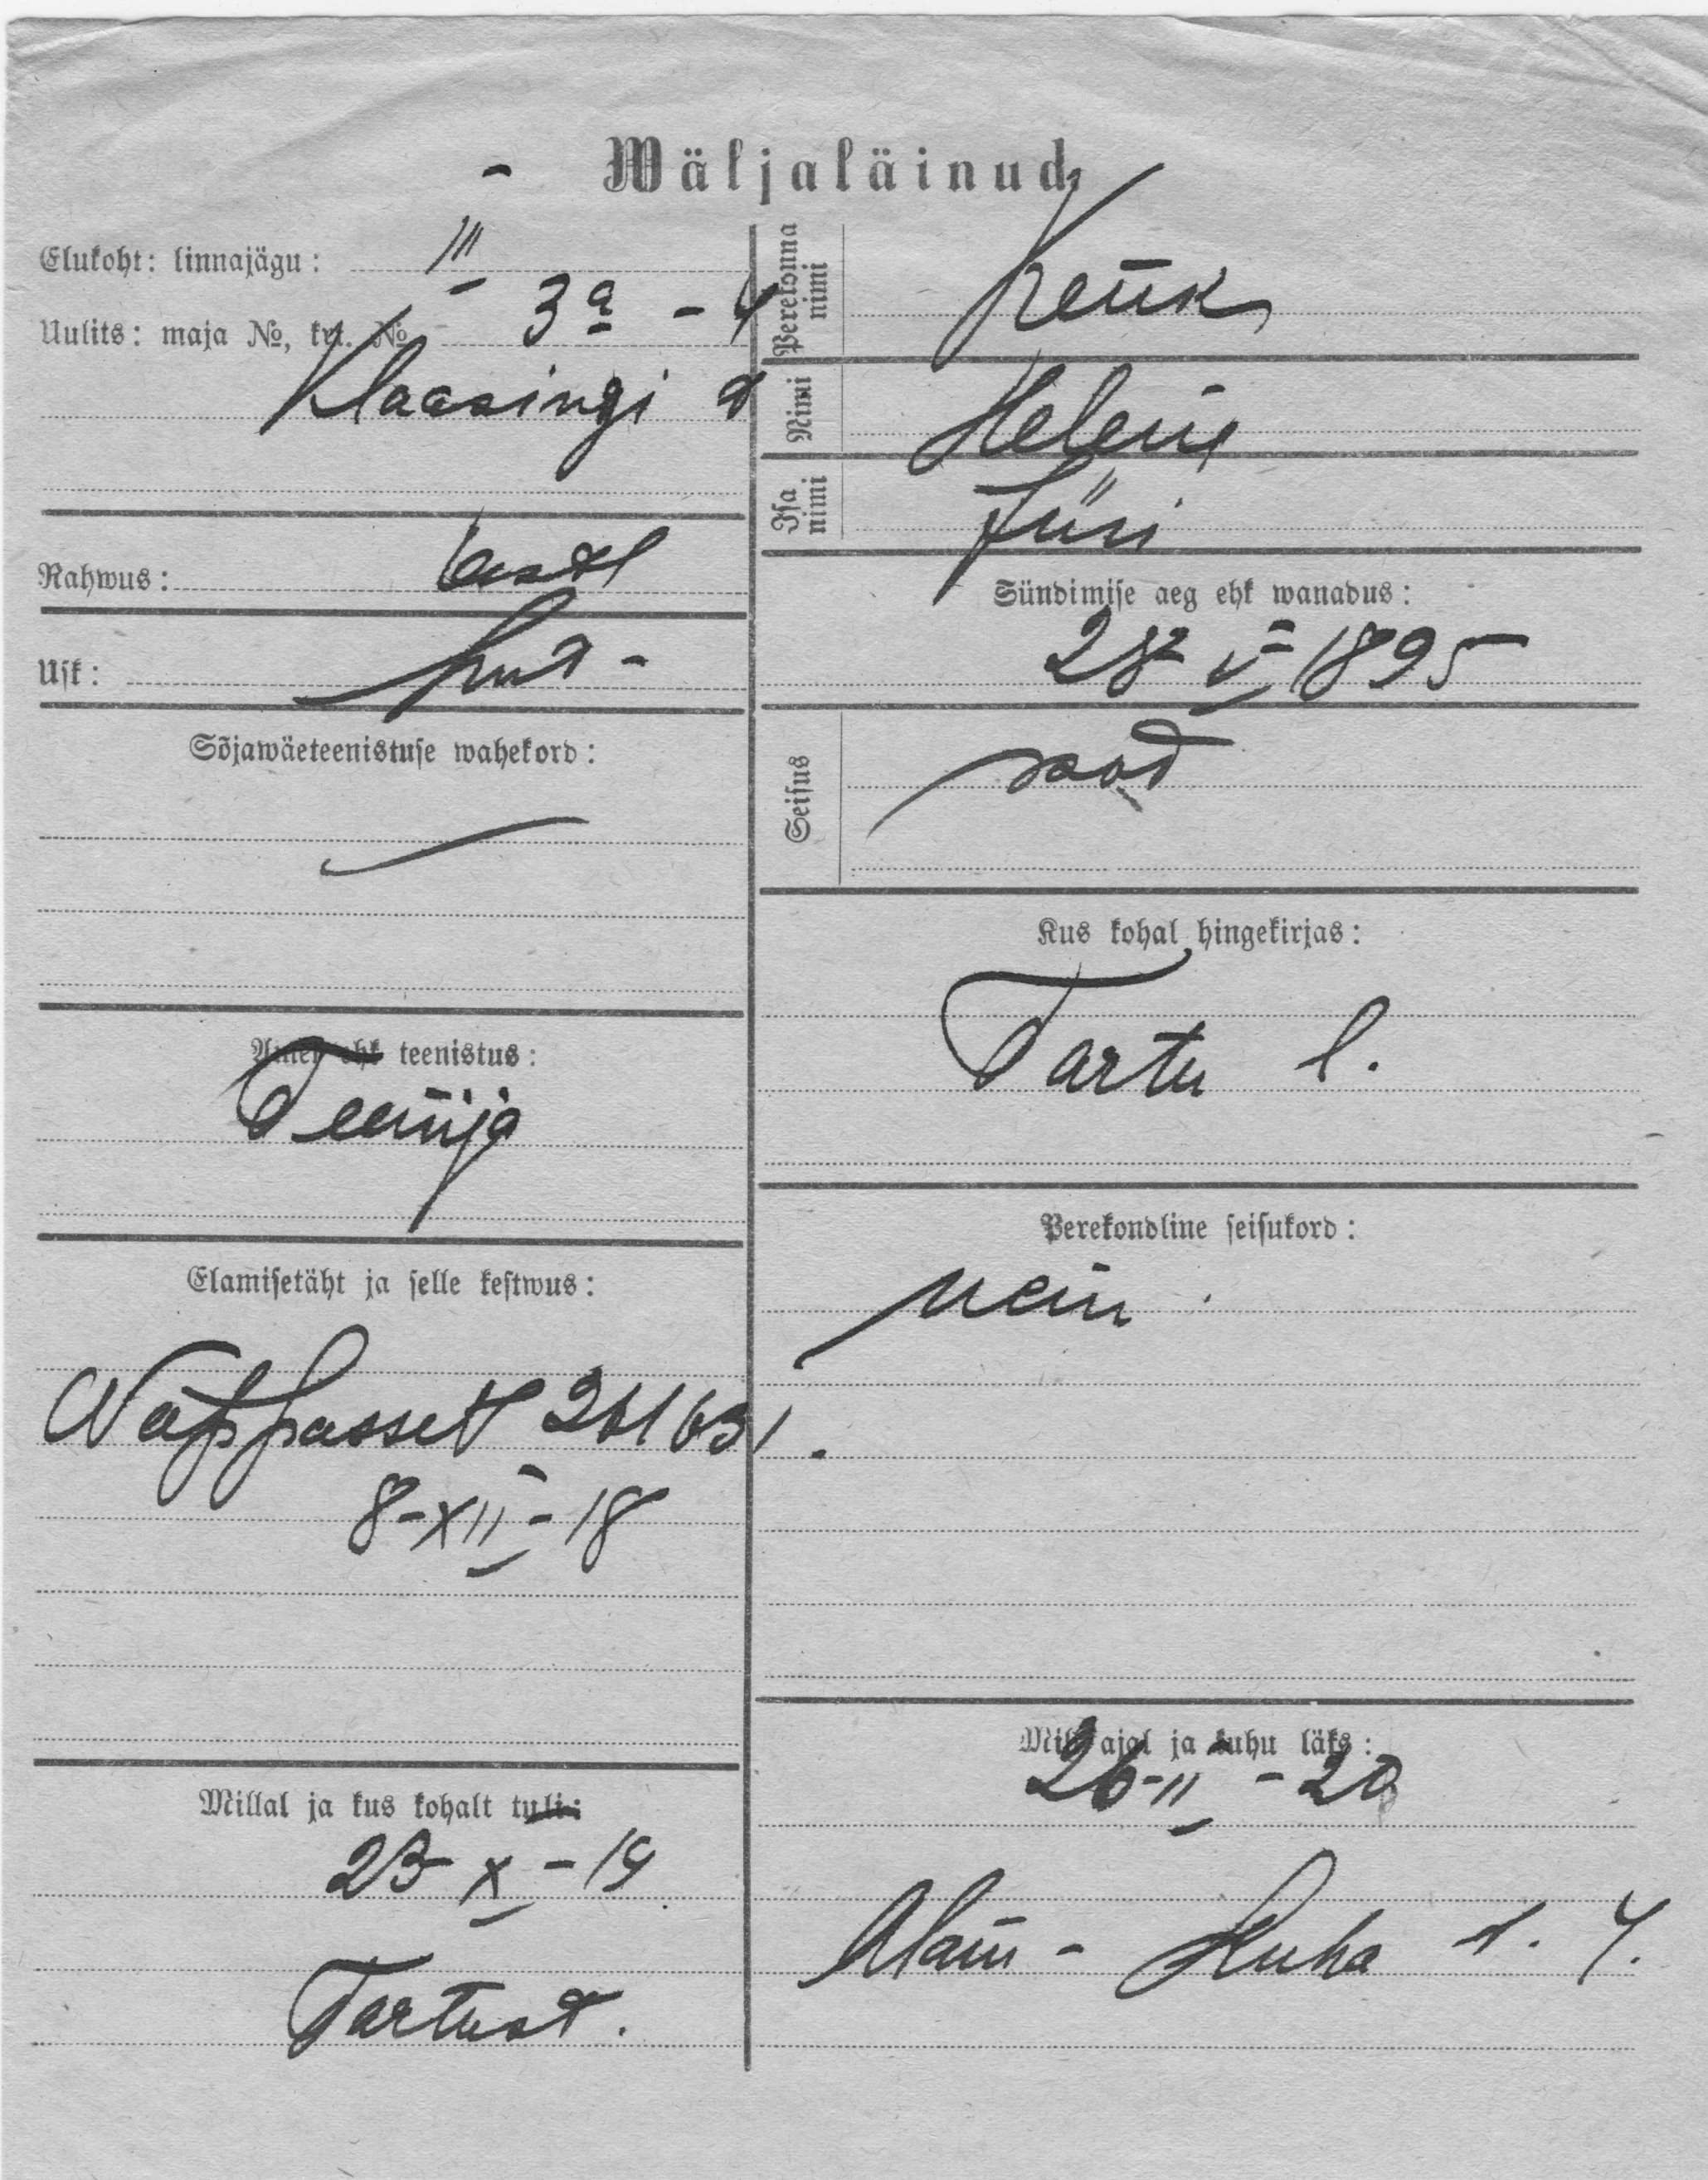 Wäljaläinud
Elukoht: linnajägu: III
Uulits: maja №, krt. № 3a - 4
Klaasingi t
Rahwus: eestl
Usk: lut-
Sõjawäeteenistuse wahekord:
Amet ehk teenistus:
Teenija
Elamisetäht ja selle kestwus:
Näppasset 261631.
8-XII-18
Millal ja kus kohalt tuli:
23 X - 19
Tartust.
Perekonna nimi
Nimi Helene
Isa nimi Jüri
Sündimise aeg ehk wanadus:
28 V 1895
Seisus
Kus kohal hingekirjas:
Tartu l.
Perekondline seisukord:
nein
Mil ajal ja kuhu läks:
26-II-20
Alam - Kuha t. 4.